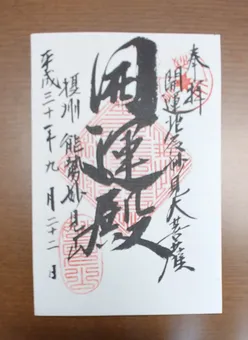 奉拝
開運北辰妙見大菩薩
開運殿
摂州 能勢妙見山
平成三十年九月二十二日